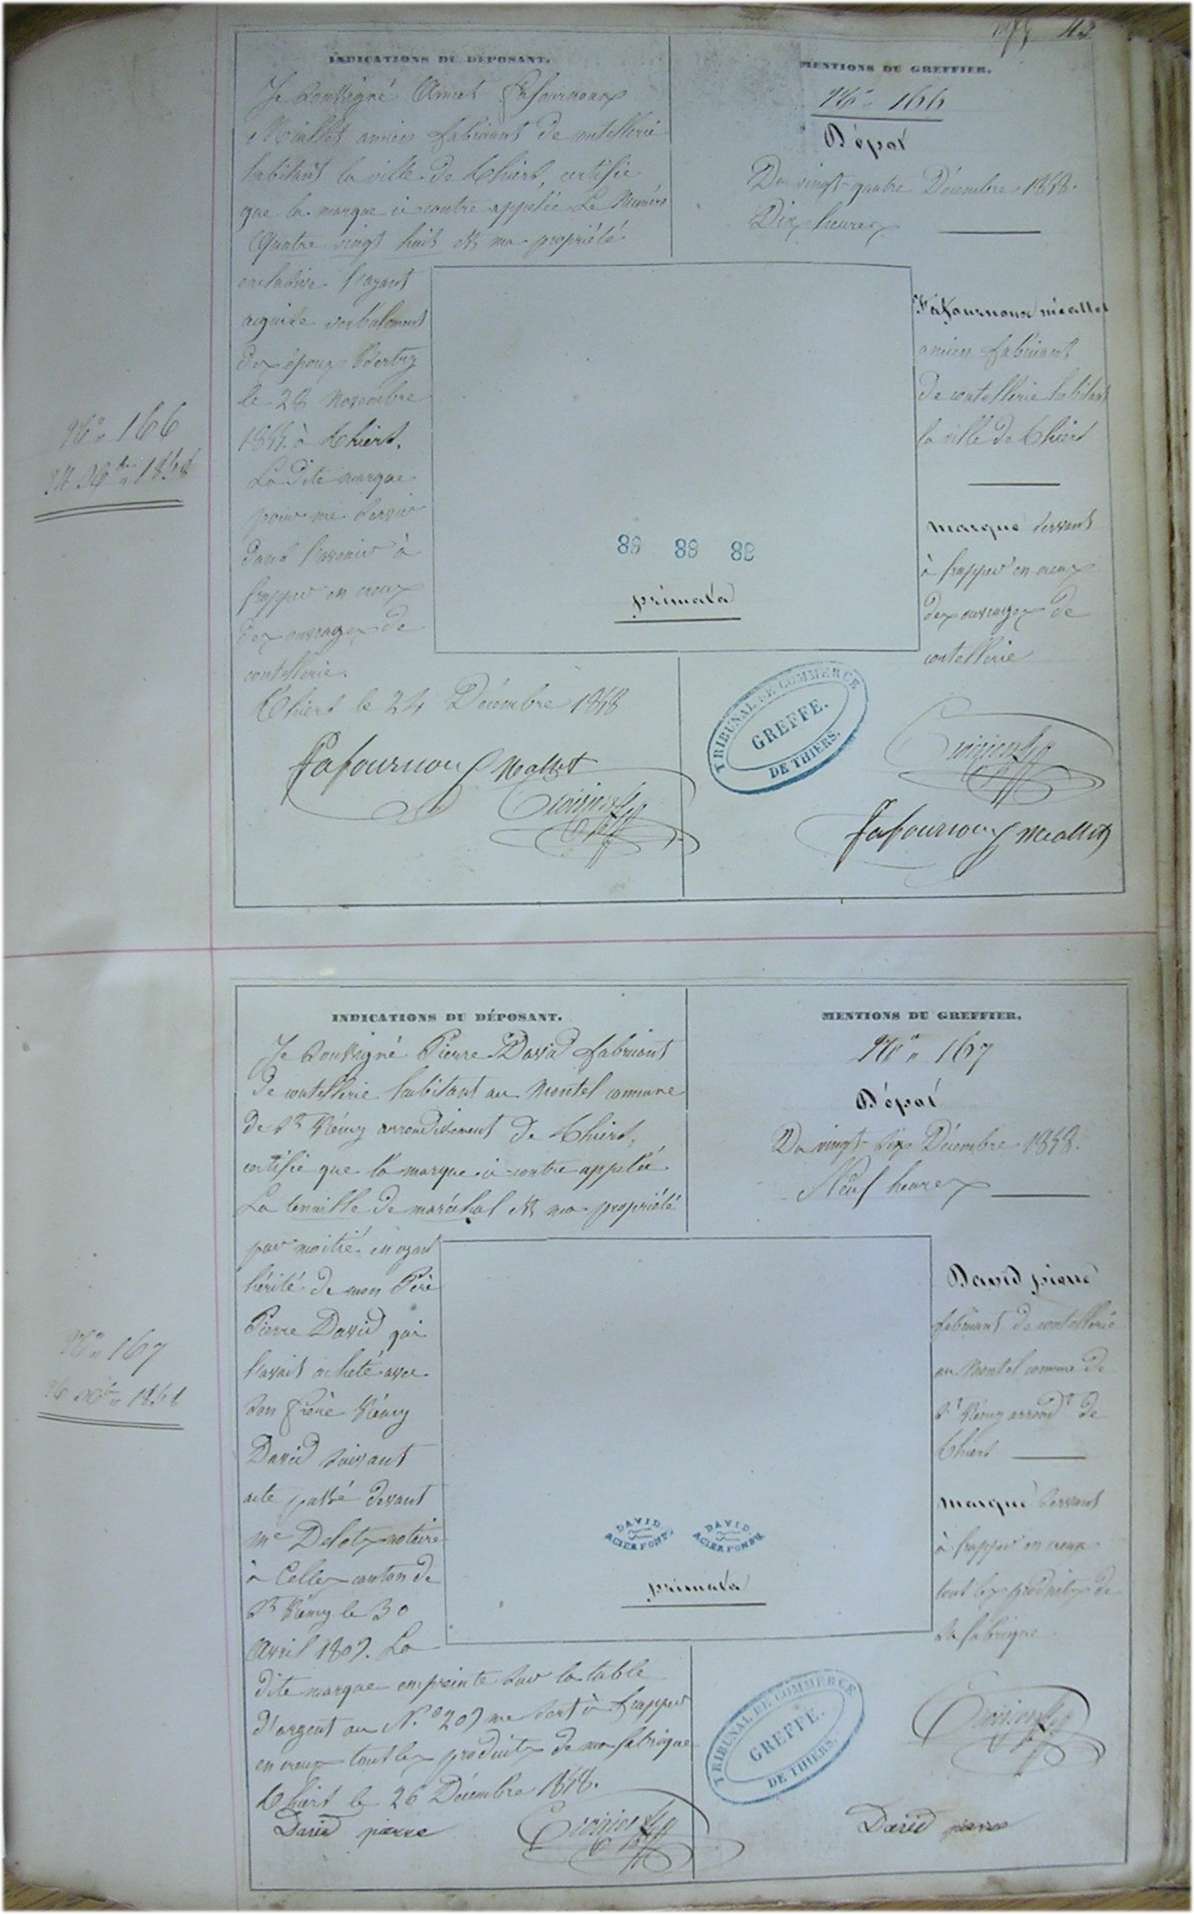 43
INDICATIONS DU DÉPOSANT.
Je soussigné Annet Fafournoux
Méallet ancien fabricant de coutellerie
habitant la ville de Thiers, certifie
que la marque ci contre appelée Le Numéro
Quatre vingt huit est ma propriété
exclusive l'ayant
acquise verbalement
des époux
le 28 Novembre
à Thiers.
La dite marque
pour me servir
dans l'avenir à
frapper en creux
des ouvrages de
coutellerie.
Thiers le 24 Décembre 1858
Fafournoux Meallet
MENTIONS DU GREFFIER.
N.o 166
Dépôt
Du vingt quatre Décembre 1858.
Dix heures
Fafournoux méallet
ancien fabricant
de coutellerie habitant
la ville de Thiers
marque servant
à frapper en creux
des ouvrages de
coutellerie
88 88 88
primata
TRIBUNAL DE COMMERCE
GREFFE.
DE THIERS.
Fafournoux Meallet
N.o 166
24 Xbre 1858
INDICATIONS DU DÉPOSANT.
Je soussigné Pierre David fabricant
de coutellerie habitant au Montel commune
de St Rémy arrondissement de Thiers,
certifie que la marque ci contre appelée
La tenaille de maréchal est ma propriété
par moitié en ayant
hérité de mon Père
Pierre David qui
l'avait acheté avec
son frère Rémy
David suivant
acte passé devant
Me notaire
à Celles canton de
St Rémy le 30
Avril 1807. La
dite marque empreinte sur la table
d'argent au N.o 207 me sert à frapper
en creux tout les produits de ma fabrique
Thiers le 26 Décembre 1858.
David pierre
MENTIONS DU GREFFIER.
N.o 167
Dépôt
Du vingt six Décembre 1858.
Neuf heures
David pierre
fabricant de coutellerie
au Montel commune de
St Rémy arrondt de
Thiers
marque servant
à frapper en creux
tout les produits de
sa fabrique
DAVID
ACIER FONDU
DAVID
ACIER FONDU
primata
TRIBUNAL DE COMMERCE
GREFFE.
DE THIERS.
David pierre
N.o 167
26 Xbre 1858